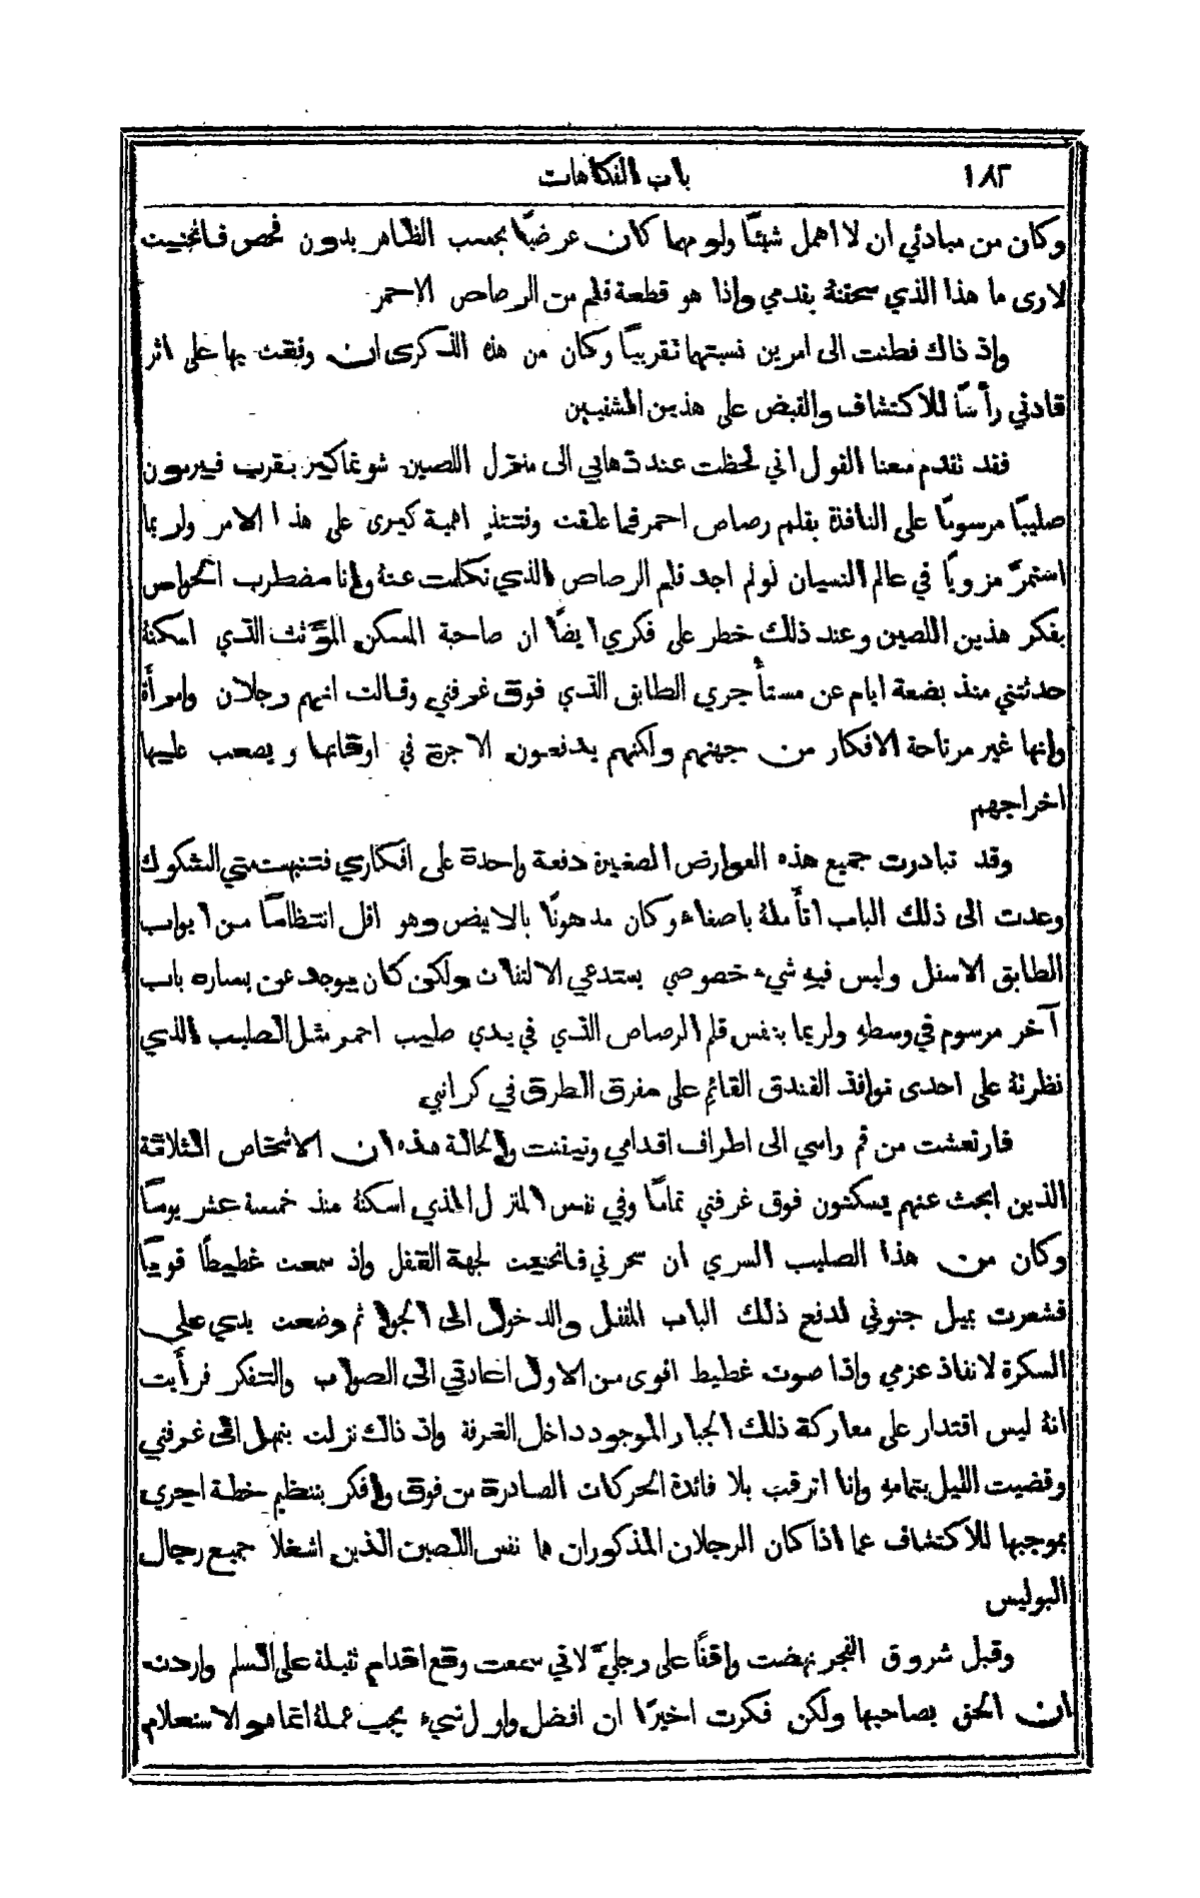 ١٨٢ باب الفكاهات
وكان من مبادئي ان لا اهمل شيئًا ولو مهما كان عرضيًا بحسب الظاهر بدون فحص فانحنيت
لارى ما هذا الذي سحقتهُ بقدمي واذا هو قطعة قلم من الرصاص الاحمر
واذ ذاك فطنت الى امرين نسيتهما تقريبًا وكان من هذه الذكرى ان وقفت بها على اثر
قادني رأسًا للاكتشاف والقبض على هذين الشقيين
فقد تقدم معنا القول اني لحظت عند ذهابي الى منزل اللصين شونماكير بقرب فيرمون
صليبًا مرسومًا على النافذة بقلم رصاص احمر فما علقت وقتئذٍ اهمية كبرى على هذا الامر ولربما
استمرَّ مزويًا في عالم النسيان لو لم اجد قلم الرصاص الذي تكلمت عنهُ وانا مضطرب الحواس
بفكر هذين اللصين وعند ذلك خطر على فكري ايضًا ان صاحبة المسكن المؤثث الذي اسكنهُ
حدثتني منذ بضعة ايام عن مستأجري الطابق الذي فوق غرفتي وقالت انهم رجلان وامرأة
وانها غير مرتاحة الافكار من جهتهم ولكنهم يدفعون الاجرة في اوقاتها ويصعب عليها
اخراجهم
وقد تبادرت جميع هذه العوارض الصغيرة دفعة واحدة على افكاري فتنبهت بي الشكوك
وعدت الى ذلك الباب اتأملهُ باصغاء وكان مدهونًا بالابيض وهو اقل انتظامًا من ابواب
الطابق الاسفل وليس فيهِ شيء خصوصي يستدعي الالتفات ولكن كان يوجد عن يساره باب
آخر مرسوم في وسطهِ ولربما بنفس قلم الرصاص الذي في يدي صليب احمر مثل الصليب الذي
نظرتهُ على احدى نوافذ الفندق القائم على مفرق الطرق في كرانبي
فارتعشت من قم راسي الى اطراف اقدامي وتيقنت والحالة هذه ان الاشخاص الثلاثة
الذين ابحث عنهم يسكنون فوق غرفتي تمامًا وفي نفس المنزل الذي اسكنهُ منذ خمسة عشر يومًا
وكان من هذا الصليب السري ان سحرني فانحنيت لجهة القفل واذ سمعت غطيطًا قويًا
فشعرت بميل جنوني لدفع ذلك الباب المقفل والدخول الى الجوا ثم وضعت يدي على
السكرة لانفاذ عزمي واذا صوت غطيط اقوى من الاول اعادني الى الصواب والتفكر فرأيت
انهُ ليس اقتدار على معاركة ذلك الجبار الموجود داخل الغرفة واذ ذاك نزلت بتمهل الى غرفتي
وقضيت الليل بتمامهِ وانا اترقب بلا فائدة الحركات الصادرة من فوق وافكر بتنظيم خطة اجري
بموجبها للاكتشاف عما اذا كان الرجلان المذكوران هما نفس اللصين الذين اشغلا جميع رجال
البوليس
وقبل شروق الفجر نهضت واقفًا على رجليَّ لاني سمعت وقع اقدام ثقيلة على السلم واردت
ان الحق بصاحبها ولكن فكرت اخيرًا ان افضل واول شيء يجب عملهُ انما هو الاستعلام